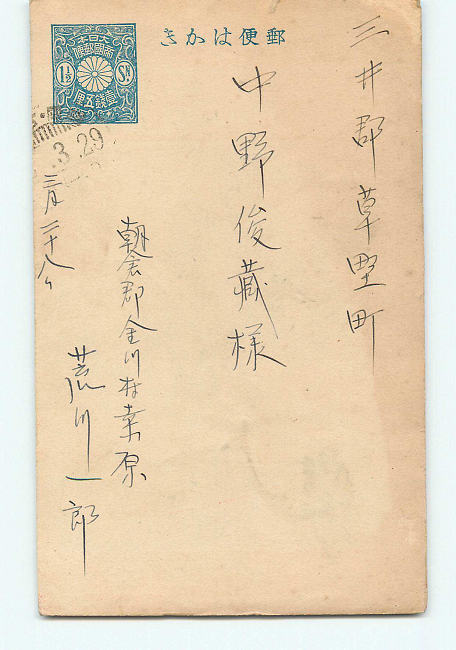 郵便はかき
大日本
帝國郵便
1½ SN.
壹錢五厘
3.29
三井郡草野町
中野俊蔵様
朝倉郡金川村桒原
荒川一郎
三月二十八日